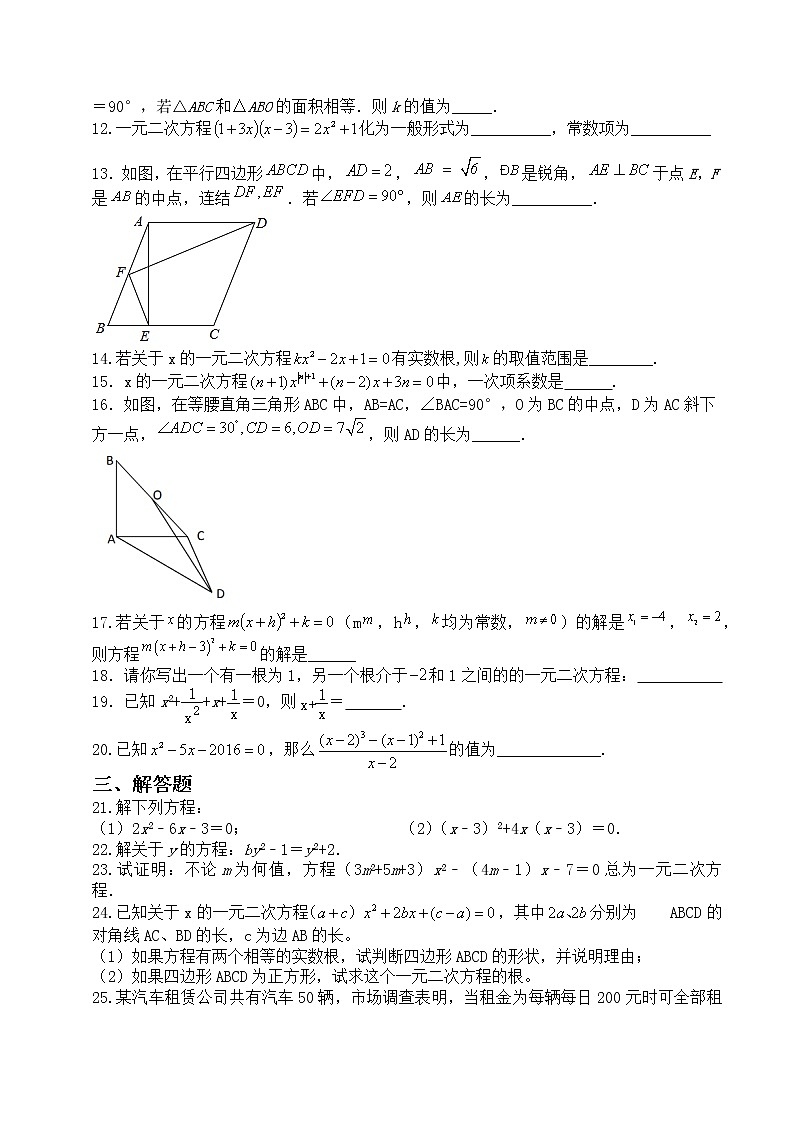 =90°,若△ABC和△ABO的面积相等.则k的值为_____.
12.一元二次方程(1+3x)(x−3)=2x²+1化为一般形式为__________,常数项为__________
13.如图,在平行四边形ABCD中, AD=2, AB = √6, ÐB是锐角, AE⊥BC于点E,F
是AB的中点,连结DF,EF.若∠EFD=90°,则AE的长为__________.
A
D
F
B
E
C
14.若关于x的一元二次方程kx²−2x+1=0有实数根,则k的取值范围是________.
15.x的一元二次方程(n+1)x^{|n|+1}+(n−2)x+3n=0中,一次项系数是______.
16.如图,在等腰直角三角形ABC中,AB=AC,∠BAC=90°,O为BC的中点,D为AC斜下
方一点,∠ADC=30°,CD=6,OD=7√2,则AD的长为______.
B
O
A
C
D
17.若关于x的方程m(x+h)²+k=0(mm,hh,k均为常数,m≠0)的解是x₁=−4,x₂=2,
则方程m(x+h−3)²+k=0的解是______
18.请你写出一个有一根为1,另一个根介于−2和1之间的的一元二次方程:___________
19.已知x²+1/x²+x+1/x=0,则x+1/x=_______.
20.已知x²−5x−2016=0,那么((x−2)³−(x−1)²+1)/(x−2)的值为_____________.
三、解答题
21.解下列方程:
(1)2x²﹣6x﹣3=0; (2)(x﹣3)²+4x(x﹣3)=0.
22.解关于y的方程:by²﹣1=y²+2.
23.试证明:不论m为何值,方程(3m²+5m+3)x²﹣(4m﹣1)x﹣7=0总为一元二次方
程.
24.已知关于x的一元二次方程(a+c)x²+2bx+(c−a)=0,其中2a、2b分别为 ABCD的
对角线AC、BD的长,c为边AB的长。
(1)如果方程有两个相等的实数根,试判断四边形ABCD的形状,并说明理由;
(2)如果四边形ABCD为正方形,试求这个一元二次方程的根。
25.某汽车租赁公司共有汽车50辆,市场调查表明,当租金为每辆每日200元时可全部租